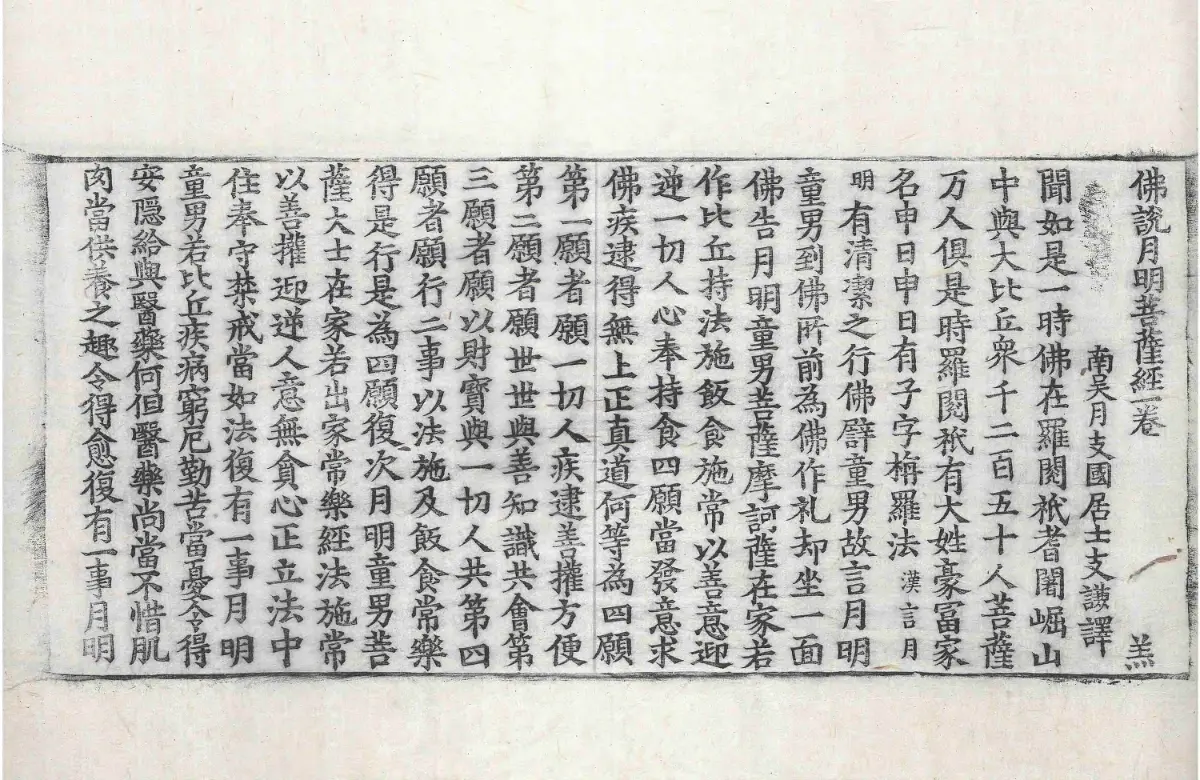 佛說月明菩薩經一卷 羔
南吳月支國居士支謙譯
聞如是一時佛在羅閱祇耆闍崛山
中與大比丘衆千二百五十人菩薩
万人俱是時羅閱祇有大姓豪冨家
名申日申日有子字栴羅法 漢言月
明 有清潔之行佛辟童男故言月明
童男到佛所前為佛作礼却坐一面
佛告月明童男菩薩摩訶薩在家若
作比丘持法施飯食施常以善意迎
逆一切人心奉持食四願當發意求
佛疾逮得無上正真道何等為四願
第一願者願一切人疾逮善攉方便
第二願者願世世與善知識共會第
三願者願以財寶與一切人共第四
願者願行二事以法施及飯食常樂
得是行是為四願復次月明童男菩
薩大士在家若出家常樂經法施常
以善攉迎逆人意無貪心正立法中
住奉守禁戒當如法復有一事月明
童男若比丘疾病窮厄勤苦當憂令得
安隱給與醫藥何但醫藥尚當不惜肌
肉當供養之趣令得愈復有一事月明